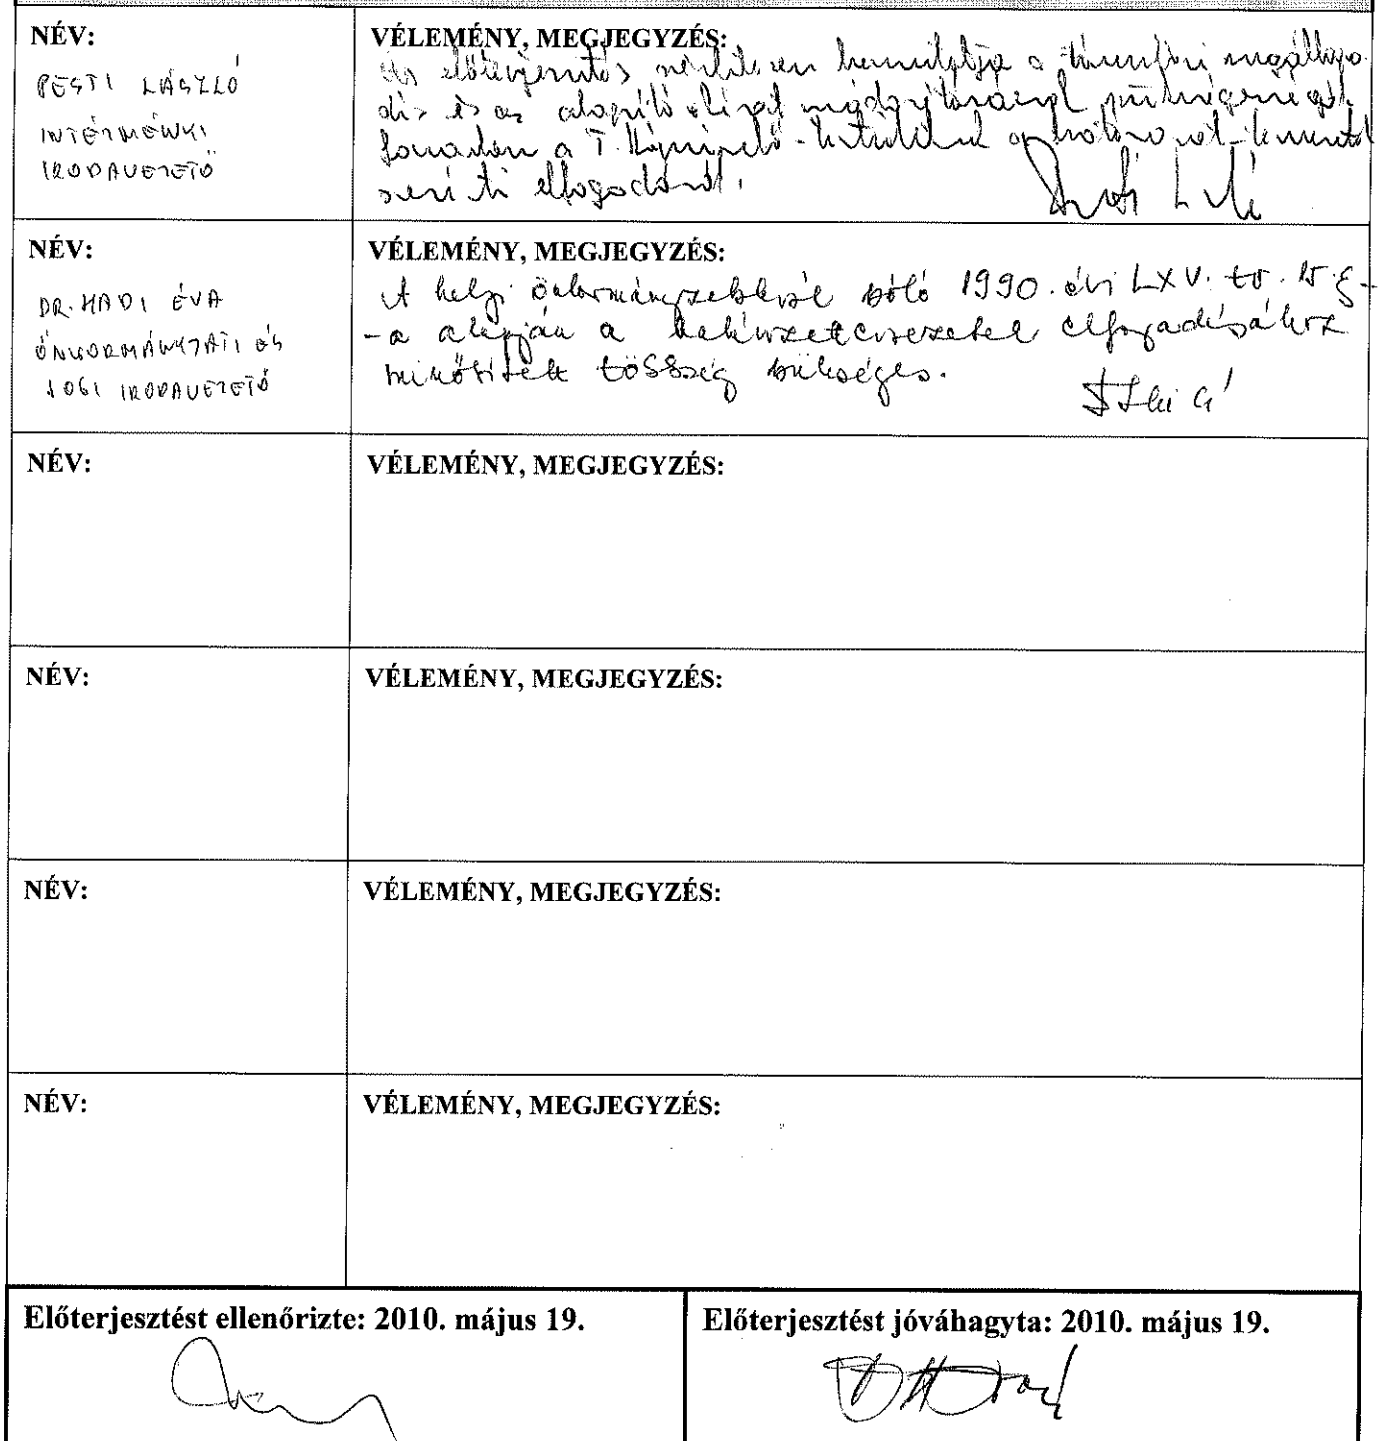 NÉV:
PESTI LÁSZLÓ
INTÉZMÉNYI
IRODAVEZETŐ
VÉLEMÉNY, MEGJEGYZÉS:
Az előterjesztés részletesen bemutatja a társulási megállapo-
dás és az alapító okirat módosításának szükségességét.
a T. Képviselő-testületnek a határozat-tervezet
szerinti elfogadását.
NÉV:
DR. HADI ÉVA
ÖNKORMÁNYZATI ÉS
JOGI IRODAVEZETŐ
VÉLEMÉNY, MEGJEGYZÉS:
A helyi önkormányzatokról szóló 1990. évi LXV. tv. 15 §-
-a alapján a határozattervezetek elfogadásához
minősített többség szükséges.
NÉV:
VÉLEMÉNY, MEGJEGYZÉS:
NÉV:
VÉLEMÉNY, MEGJEGYZÉS:
NÉV:
VÉLEMÉNY, MEGJEGYZÉS:
NÉV:
VÉLEMÉNY, MEGJEGYZÉS:
Előterjesztést ellenőrizte: 2010. május 19.
Előterjesztést jóváhagyta: 2010. május 19.